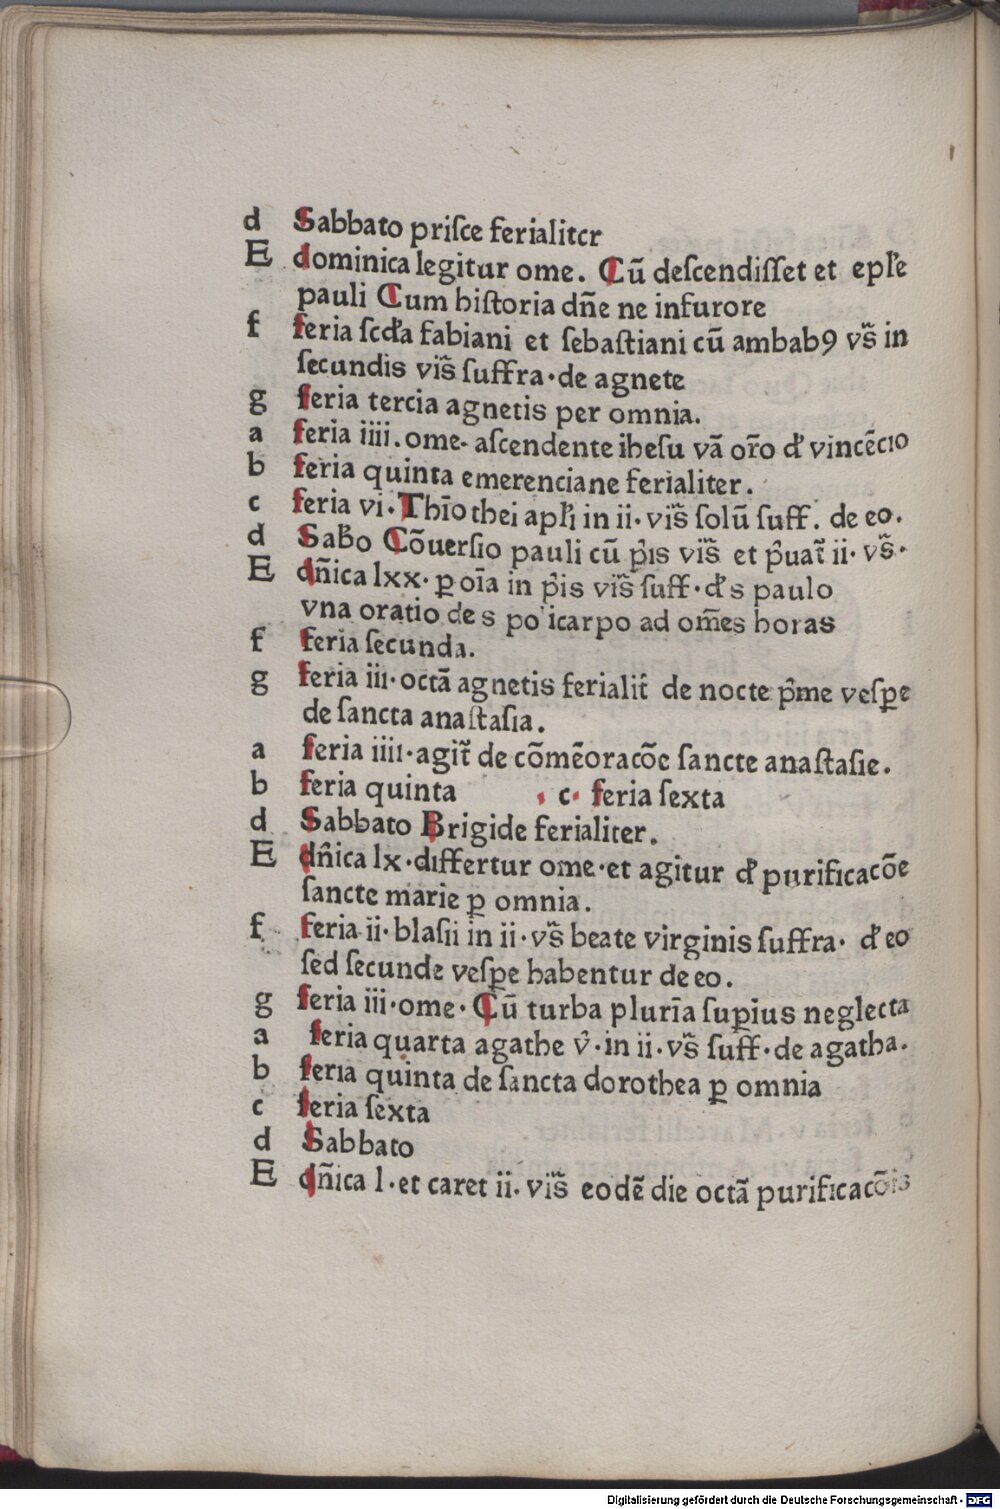 d Sabbato priſce ferialiter
E dominica legitur ome. Cū deſcendiſſet et epl̄e
pauli Cum hiſtoria dn̄e ne infurore
f feria ſcd̄a fabiani et ſebaſtiani cū ambabꝯ vs̄ in
ſecundis vis̄ ſuffra·de agnete
g feria tercia agnetis per omnia.
a feria iiii.ome·aſcendente iheſu vā or̄o đ vincēcio
b feria quinta emerenciane ferialiter.
c feria vi·Thīothei apl̄i in ii·vis̄ ſolū ſuff. de eo.
d Sab̄o Cōuerſio pauli cū p̄is vis̄ et p̄uat̄ ii·vs̄·
E dn̄ica lxx·ꝑ oīa in p̄is vis̄ ſuff·đ s paulo
vna oratio de s po icarpo ad om̄es horas
f feria ſecunda.
g feria iii·octā agnetis ferialit̄ de nocte p̄me veſꝑe
de ſancta anaſtaſia.
a feria iiii·agit̄ de cōmēoracōe ſancte anaſtaſie.
b feria quinta · c· feria ſexta
d Sabbato Brigide ferialiter.
E dn̄ica lx·differtur ome·et agitur đ purificacōe
ſancte marie ꝑ omnia.
f feria ii·blaſii in ii·vs̄ beate virginis ſuffra· đ eo
ſed ſecunde veſꝑe habentur de eo.
g feria iii·ome·Cū turba plurīa ſuꝑius neglecta
a feria quarta agathe v̄·in ii·vs̄ ſuff·de agatha.
b feria quinta de ſancta dorothea ꝑ omnia
c feria ſexta
d Sabbato
E dn̄ica l·et caret ii·vis̄ eodē die octā purificacōis
Digitalisierung gefördert durch die Deutsche Forschungsgemeinschaft - DFG